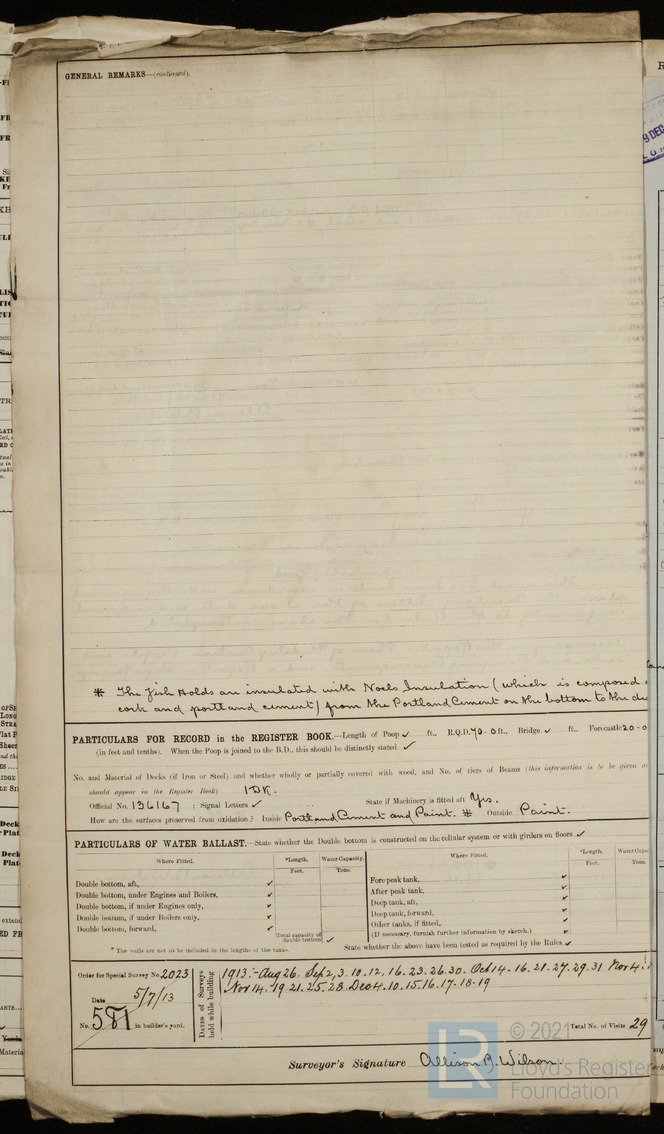 GENERAL REMARKS—(continued).
* The fish Holds are insulated with Noels Insulation (which is composed
cork and portland cement) from the Portland Cement on the bottom to the
PARTICULARS FOR RECORD in the REGISTER BOOK.—Length of Poop ✓ ft., R.Q.D. 70.0 ft., Bridge ✓ ft., Forecastle 20-0
(in feet and tenths). When the Poop is joined to the B.D., this should be distinctly stated ✓
No. and Material of Decks (if Iron or Steel) and whether wholly or partially covered with wood, and No. of tiers of Beams (this information is to be given as
should appear in the Register Book) 1DK.
Official No. 136167 : Signal Letters ✓ State if Machinery is fitted aft Yes.
How are the surfaces preserved from oxidation? Inside Portland Cement and Paint. * Outside Paint.
PARTICULARS OF WATER BALLAST.—State whether the Double bottom is constructed on the cellular system or with girders on floors ✓
Where Fitted. *Length. Water Capacity. Where Fitted. *Length. Water Capa
Feet. Tons. Feet. Tons.
Double bottom, aft, ✓ Fore peak tank, ✓
Double bottom, under Engines and Boilers, ✓ After peak tank, ✓
Double bottom, if under Engines only, ✓ Deep tank, aft, ✓
Double bottom, if under Boilers only, ✓ Deep tank, forward, ✓
Double bottom, forward, ✓ Other tanks, if fitted, ✓
Total capacity of double bottom ✓ (If necessary, furnish further information by sketch.) ✓
* The wells are not to be included in the lengths of the tanks. State whether the above have been tested as required by the Rules ✓
Order for Special Survey No. 2023
Date 5/7/13
No. 581 in builder's yard.
DATES of Surveys held while building
1913:- Aug 26. Sep 2, 3. 10. 12. 16. 23. 26. 30. Oct 14. 16. 21. 27. 29. 31 Nov 4.
Nov 14. 19. 21. 25. 28. Dec 4. 10. 15. 16. 17. 18. 19
Total No. of Visits 29
Surveyor's Signature Allison B. Wilson
LR
© 2021
Lloyd's Register
Foundation